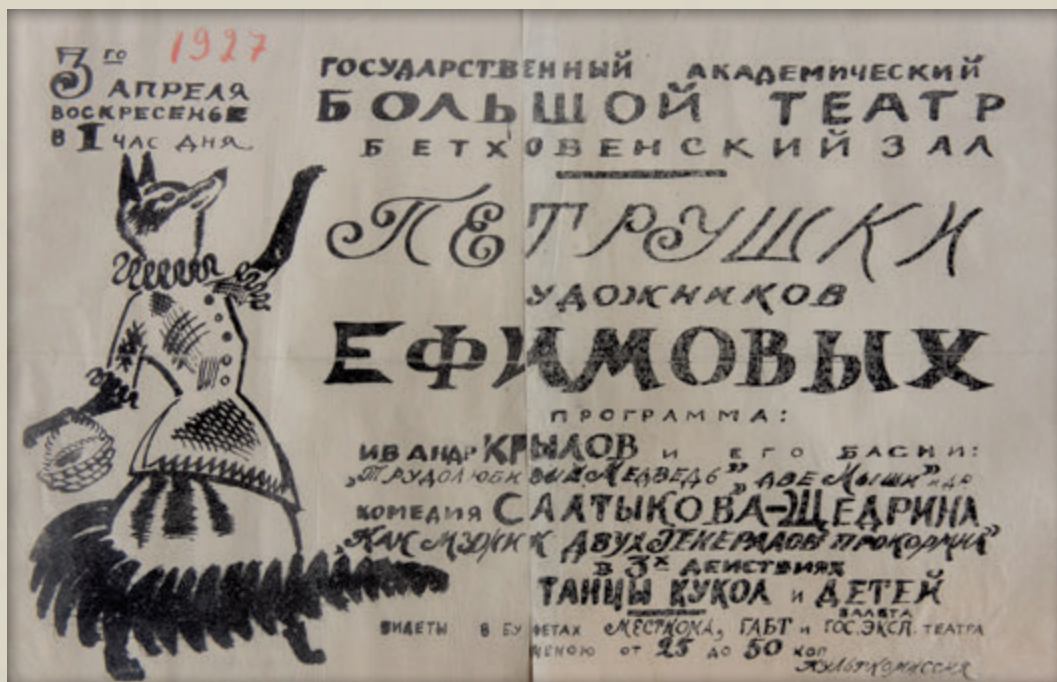 3го 1927
АПРЕЛЯ
ВОСКРЕСЕНЬЕ
В 1 ЧАС ДНЯ
ГОСУДАРСТВЕННЫЙ АКАДЕМИЧЕСКИЙ
БОЛЬШОЙ ТЕАТР
БЕТХОВЕНСКИЙ ЗАЛ
ПЕТРУШКИ
УДОЖНИКОВ
ЕФИМОВЫХ
ПРОГРАММА:
ИВ АНДР КРЫЛОВ И ЕГО БАСНИ:
„ТРУДОЛЮБИВЫЙ МЕДВЕДЬ” „ДВЕ МЫШИ” И ДР
КОМЕДИЯ САЛТЫКОВА-ЩЕДРИНА
„КАК МУЖИК ДВУХ ГЕНЕРАЛОВ ПРОКОРМИЛ”
В 3х ДЕЙСТВИЯХ
ТАНЦЫ КУКОЛ И ДЕТЕЙ
БАЛЕТА
БИЛЕТЫ В БУФЕТАХ МЕСТКОМА, ГАБТ И ГОС. ЭКСП. ТЕАТРА
ЦЕНОЮ ОТ 25 ДО 50 КОП
КУЛЬТКОМИССИЯ